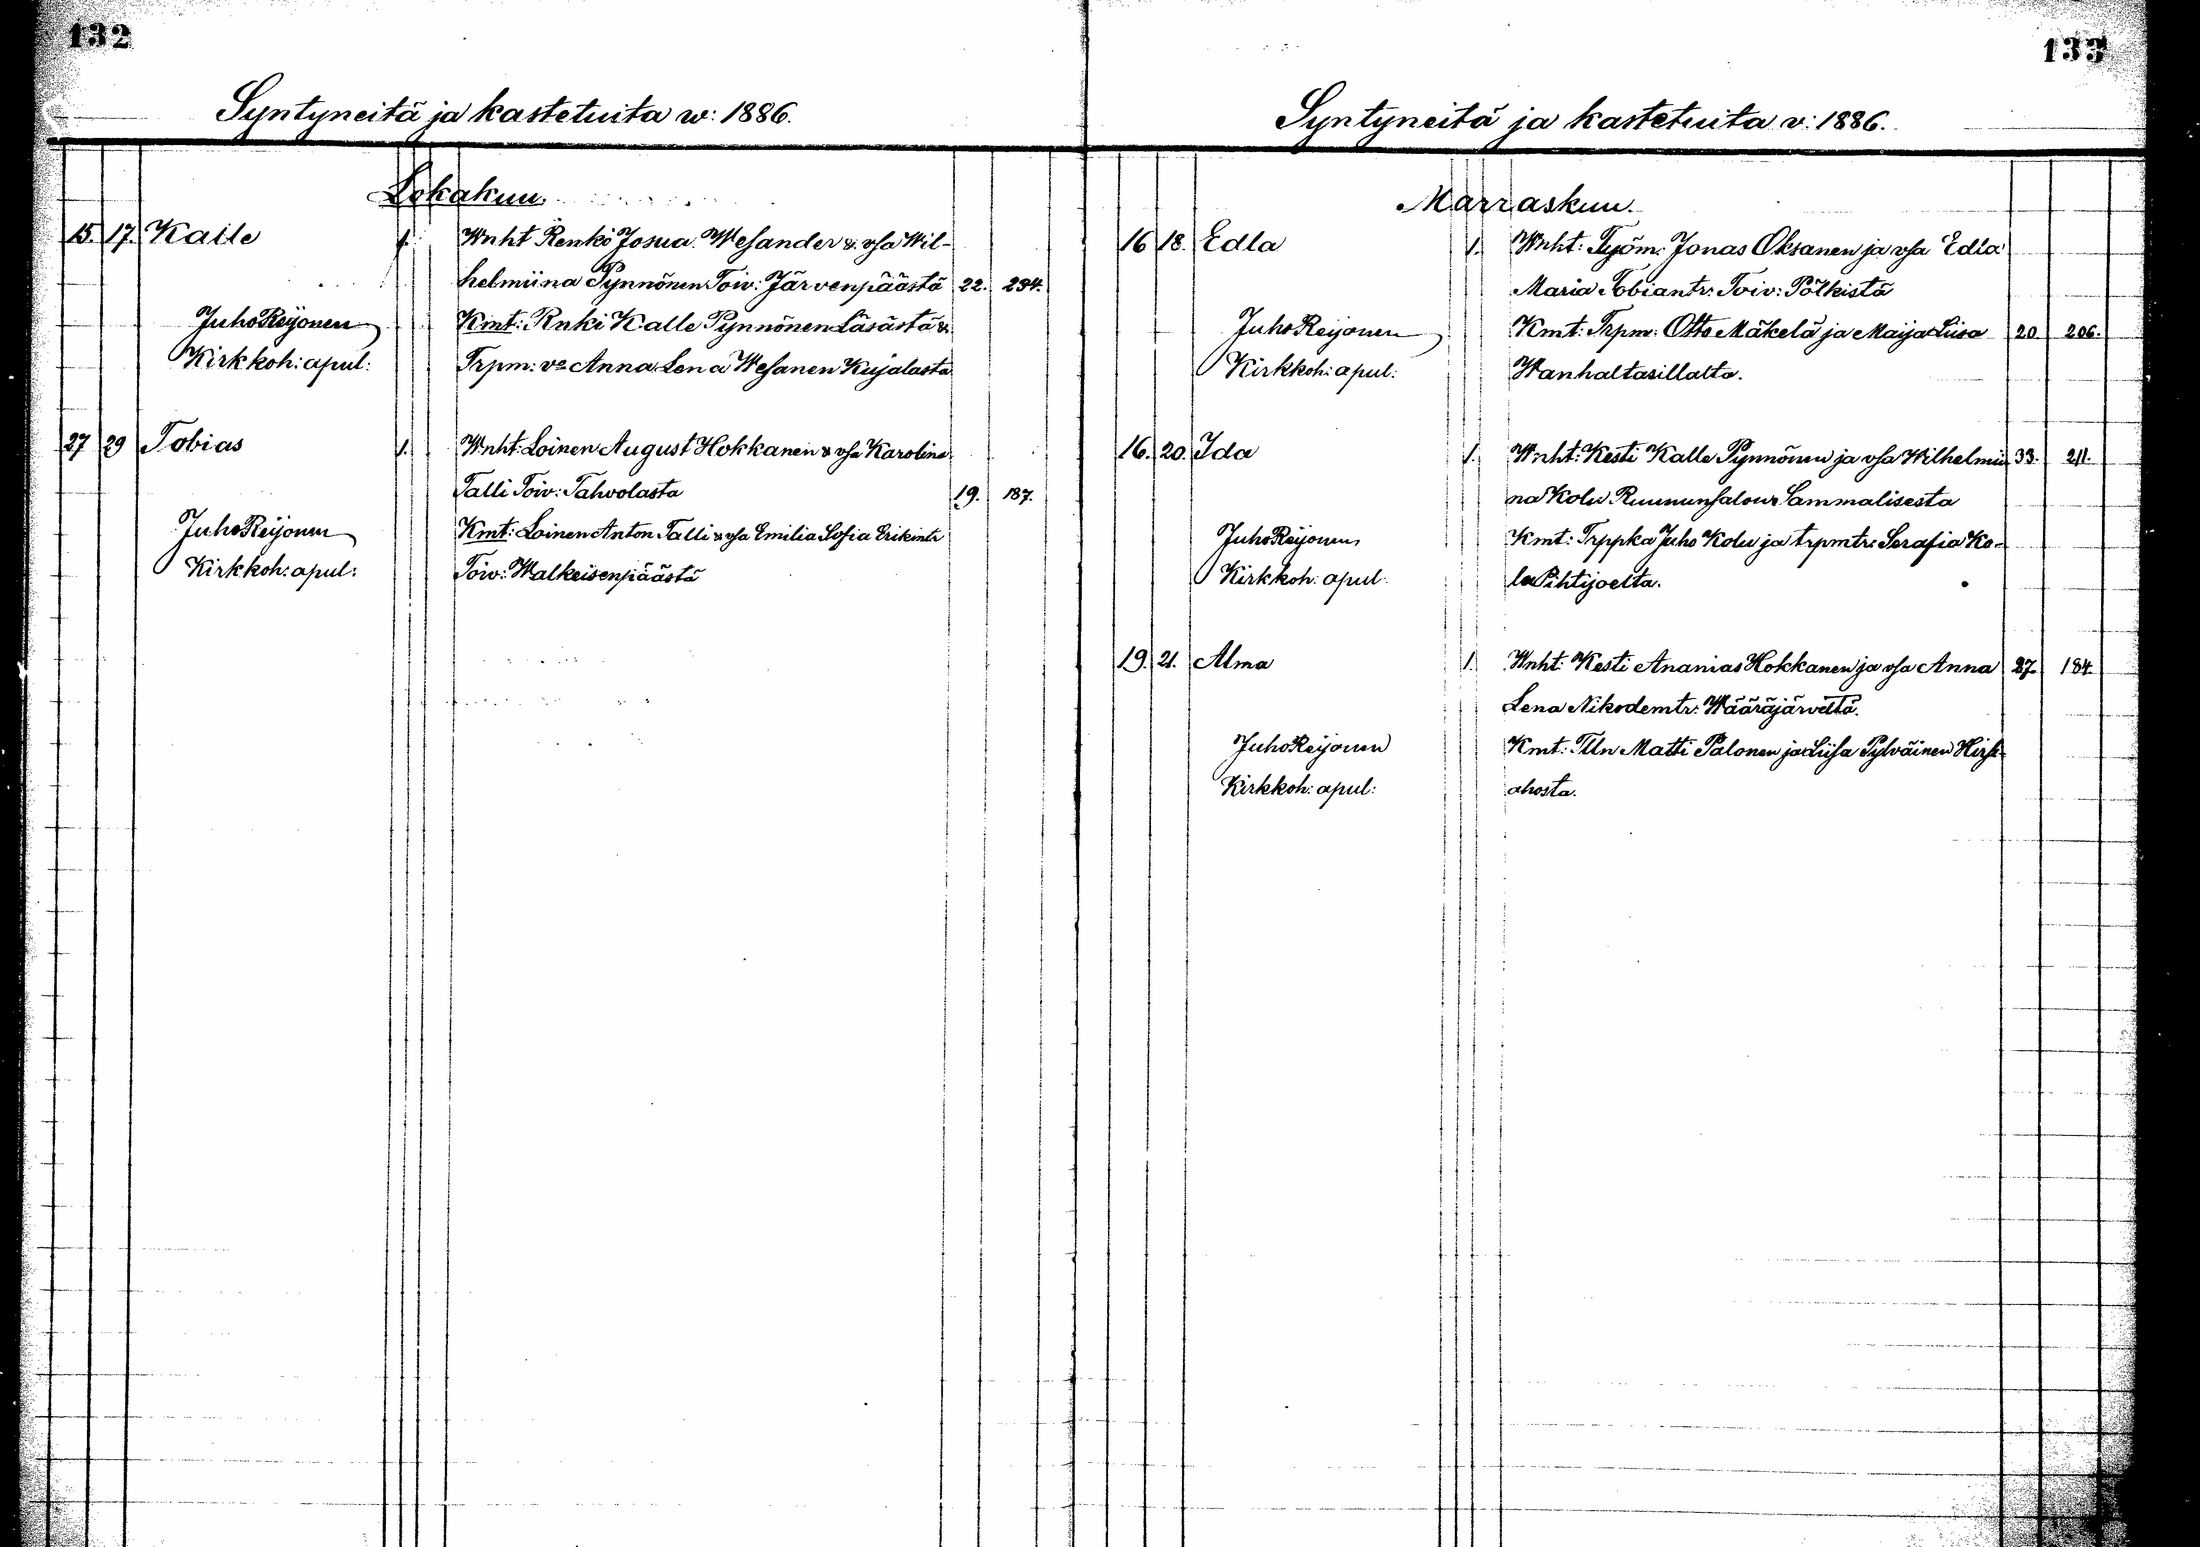 132
Syntyneitä ja kastetuita w: 1886.
Lokakuu.
15. 17. Kalle 1. Wnht Renki Josua Wesander & vsa Wil-
helmiina Pynnönen Toiv: Järvenpäästä 22. 234.
Juho Reijonen Kmt: Rnki Kalle Pynnönen Läsästä &
Kirkkoh: apul: Trpm: vo Anna Lena Wesanen Kujalasta
27 29 Tobias 1. Wnht: Loinen August Hokkanen & vsa Karolina
Talli Toiv: Tahvolasta 19. 187.
Juho Reijonen Kmt: Loinen Anton Talli & vsa Emilia Sofia Erikintr
Kirkkoh: apul: Toiv: Walkeisenpäästä
133
Syntyneitä ja kastetuita v: 1886.
Marraskuu.
16 18. Edla 1. Wnht: Työm: Jonas Oksanen ja vsa Edla
Maria Tobiantr: Toiv: Pölkistä
Juho Reijonen Kmt: Trpm: Otto Mäkelä ja Maija Liisa 20 206.
Kirkkoh: apul: Wanhaltasillalta.
16. 20. Ida 1. Wnht: Kesti Kalle Pynnönen ja vsa Wilhelmii 33. 211.
na Kolu Sammalisesta
Juho Reijonen Kmt: Trppka Juho Kolu ja trpmtr: Serafia Ko-
Kirkkoh: apul: lu Pihtijoelta.
19. 21. Alma 1. Wnht: Kesti Ananias Hokkanen ja vsa Anna 27. 184.
Lena Nikodemtr: Wääräjärveltä.
Juho Reijonen Kmt: Tlln Matti Palonen ja Liisa Pylväinen
Kirkkoh: apul: ahosta.